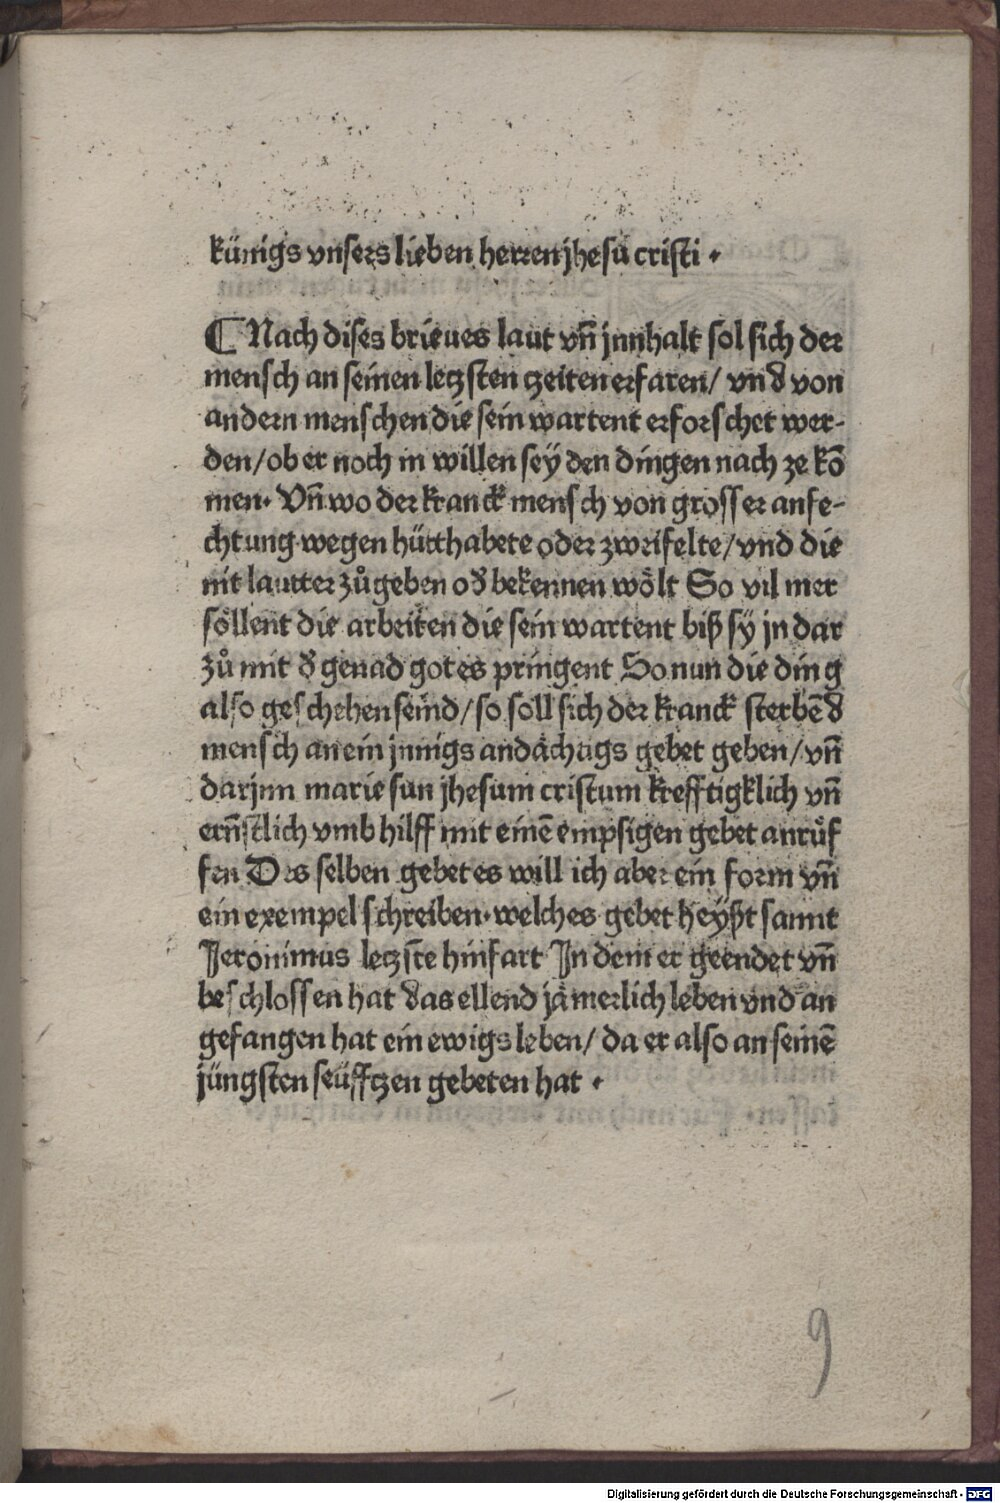 künigs vnsers lieben herren jhesu cristi .
⸿ Nach dises brieues laut vñ jnnhalt sol sich der
mensch an seinen letzsten tzeiten erfaren/ vnd von
andern menschen die sein wartent erforschet wer-
den/ ob er noch in willen sey den dingen nach ze kõ
men. Vñ wo der kranck mensch von grosser anfe-
chtung wegen hütthabete oder zweifelte/ vnd die
nit lautter zůgeben oď bekennen wölt So vil mer
söllent die arbeiten die sein wartent biß sy jn dar
zů mit ď genad gotes pringent So nun die ding
also geschehen seind/ so soll sich der kranck sterbẽd
mensch an ein jnnigs andächtigs gebet geben/ vñ
darjnn marie sun jhesum cristum krefftigklich vñ
ern̄stlich vmb hilff mit einẽ empsigen gebet anrůf
fen Des selben gebetes will ich aber ein form vñ
ein exempel schreiben. welches gebet heyßt sannt
Jeronimus letzste hinfart In dem er geendet vñ
beschlossen hat das ellend jämerlich leben vnd an
gefangen hat ein ewigs leben/ da er also an seinẽ
jüngsten seüfftzen gebeten hat .
9
Digitalisierung gefördert durch die Deutsche Forschungsgemeinschaft - DFG